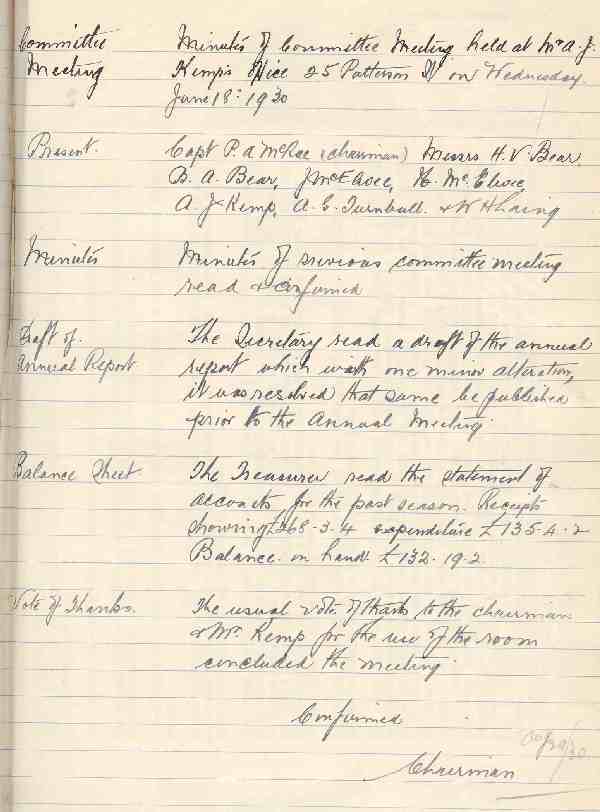 Committee Meeting
Minutes of Committee Meeting held at Mr A. J.
Kemp's Office 25 Patterson St on Wednesday
June 18th 1930
Present.
Capt P. A McRae (chairman) Messrs H. V. Bear,
B. A. Bear, J McElwee, H. McElwee,
A. J Kemp, A. G. Turnbull. & W H Laing
Minutes
Minutes of previous committee meeting
read & confirmed
Draft of.
Annual Report
The Secretary read a draft of the annual
report which with one minor alteration,
it was resolved that same be published
prior to the Annual Meeting.
Balance Sheet
The Treasurer read the statement of
accounts for the past season. Receipts
showing £268-3-4 expenditure £135-4-2
Balance on hand £132-19-2.
Vote of Thanks.
The usual vote of thanks to the chairman
& Mr. Kemp for the use of the room
concluded the meeting.
Confirmed
Chairman